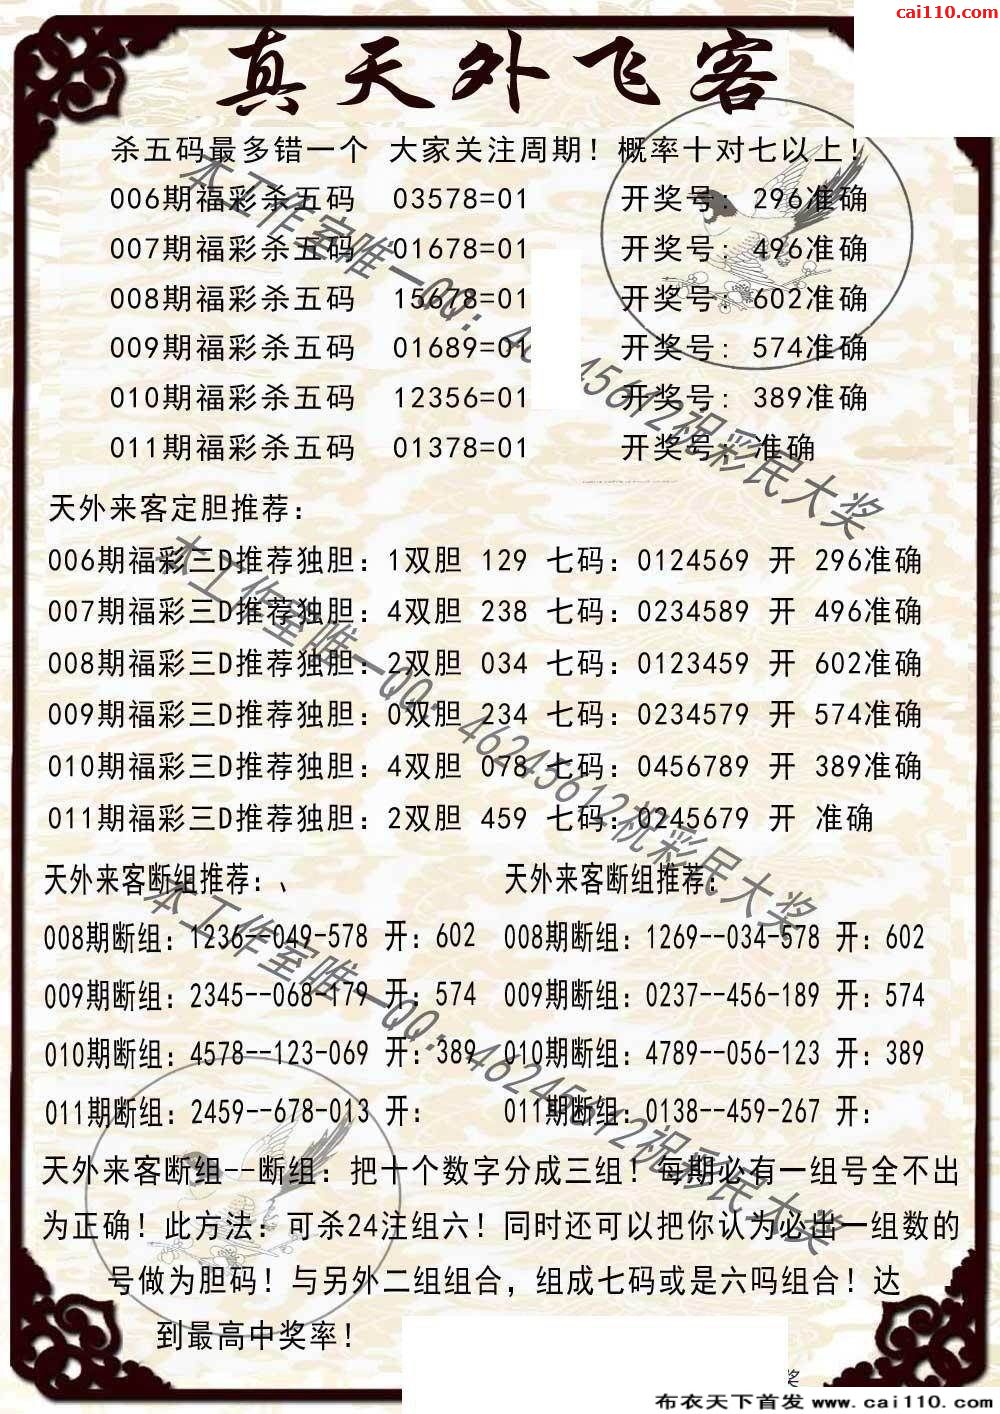 cai110.com
真天外飞客
杀五码最多错一个 大家关注周期！概率十对七以上！
006期福彩杀五码 03578=01 开奖号：296准确
007期福彩杀五码 01678=01 开奖号：496准确
008期福彩杀五码 15678=01 开奖号：602准确
009期福彩杀五码 01689=01 开奖号：574准确
010期福彩杀五码 12356=01 开奖号：389准确
011期福彩杀五码 01378=01 开奖号：准确
天外来客定胆推荐：
006期福彩三D推荐独胆：1双胆 129 七码：0124569 开 296准确
007期福彩三D推荐独胆：4双胆 238 七码：0234589 开 496准确
008期福彩三D推荐独胆：2双胆 034 七码：0123459 开 602准确
009期福彩三D推荐独胆：0双胆 234 七码：0234579 开 574准确
010期福彩三D推荐独胆：4双胆 078 七码：0456789 开 389准确
011期福彩三D推荐独胆：2双胆 459 七码：0245679 开 准确
天外来客断组推荐：、 天外来客断组推荐：
008期断组：1236--049-578 开：602 008期断组：1269--034-578 开：602
009期断组：2345--068-179 开：574 009期断组：0237--456-189 开：574
010期断组：4578--123-069 开：389 010期断组：4789--056-123 开：389
011期断组：2459--678-013 开： 011期断组：0138--459-267 开：
天外来客断组--断组：把十个数字分成三组！每期必有一组号全不出
为正确！此方法：可杀24注组六！同时还可以把你认为必出一组数的
号做为胆码！与另外二组组合，组成七码或是六吗组合！达
到最高中奖率！
本工作室唯一QQ：46245612祝彩民大奖
本工作室唯一QQ：46245612祝彩民大奖
本工作室唯一QQ：46245612祝彩民大奖
奖
布衣天下首发 www.cai110.com